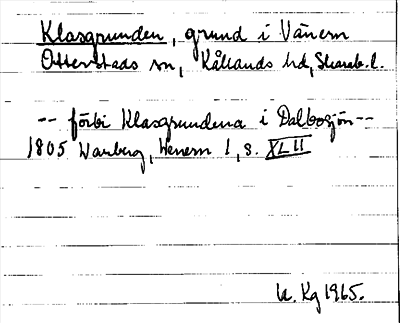 Klasgrunden, grund i Vänern
Otterstads sn, Kållands hd, Skarab. l.
-- förbi Klasgrundena i Dalbosjön --
1805 Warberg, Wenern 1, s. XLII
U. Kg 1965.